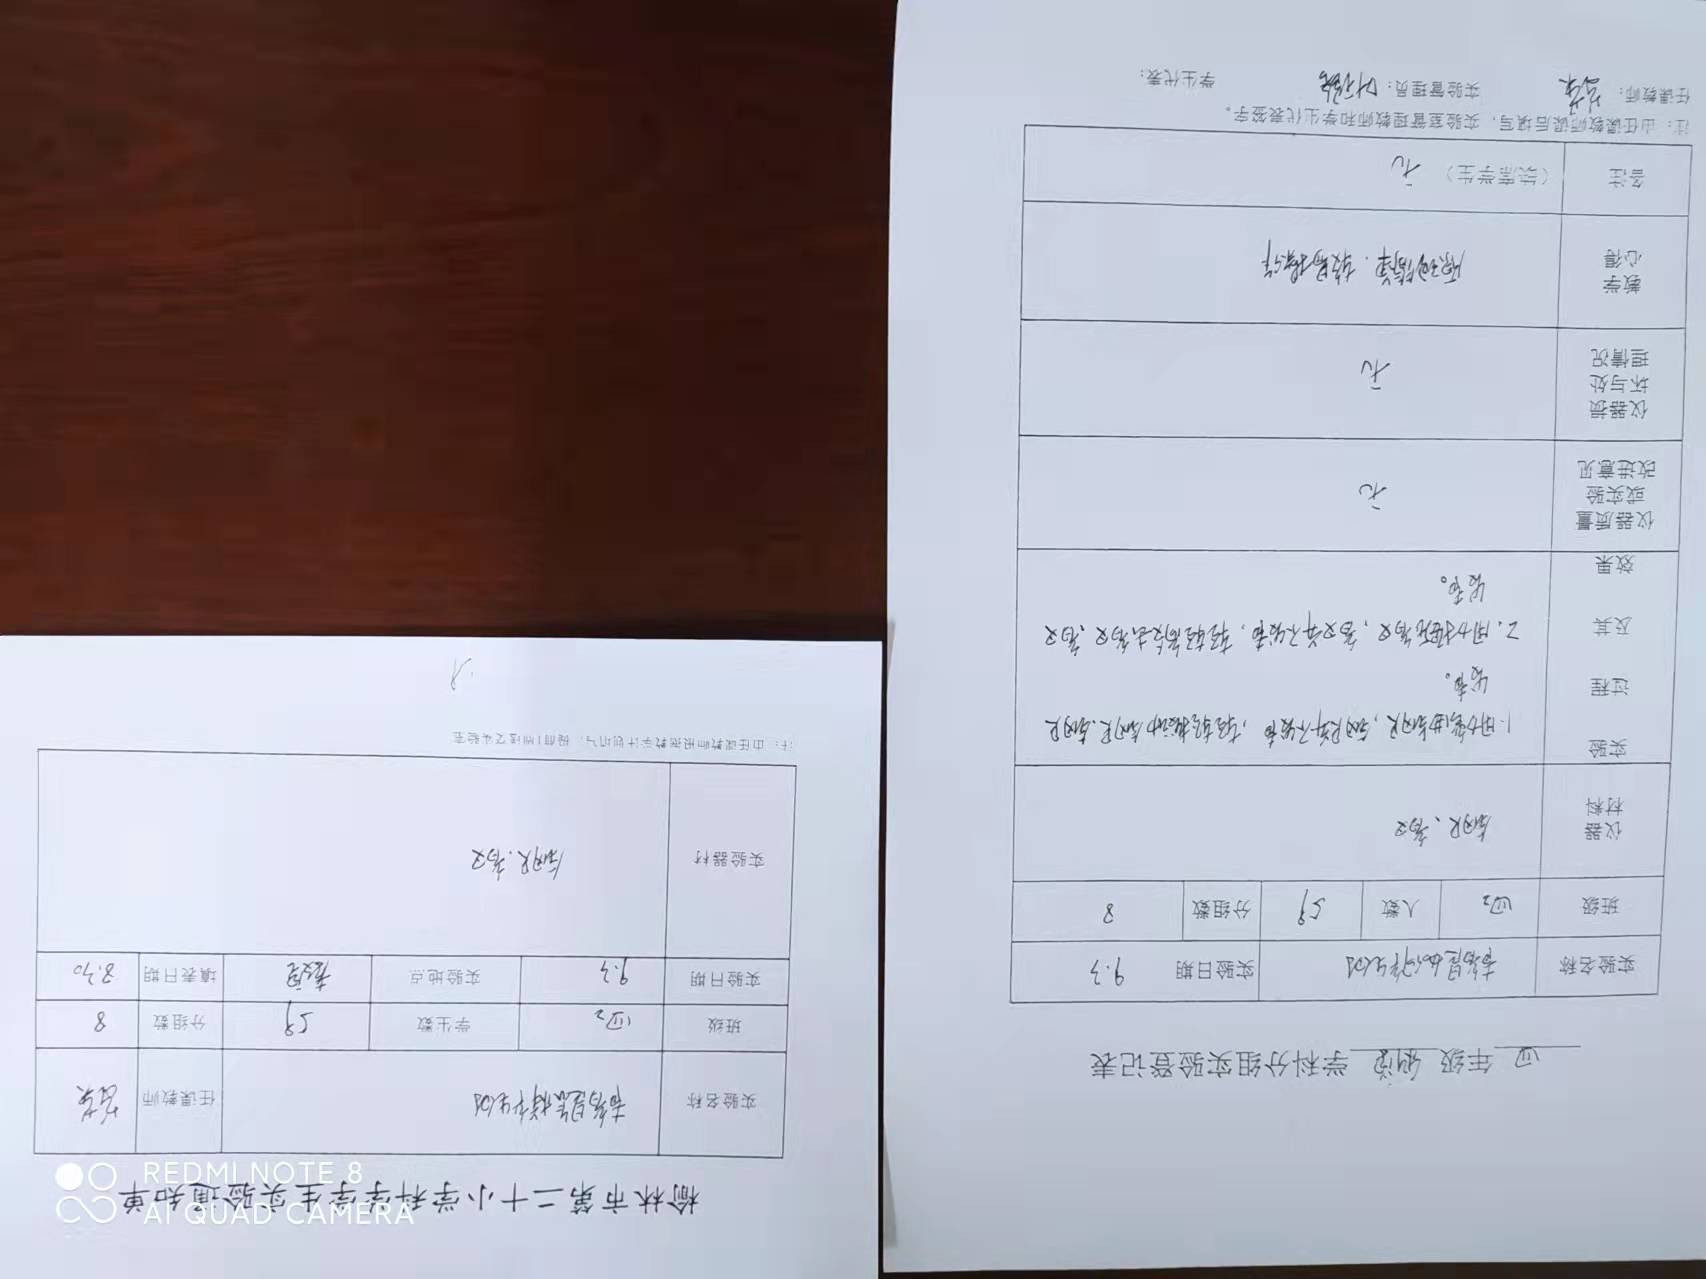 四 年级 科学 学科分组实验登记表
实验名称 声音是怎样产生的 实验日期 9.3
班级 四2 人数 59 分组数 8
仪器
材料
钢尺、音叉
实验
过程
及其
效果
1.用力弯曲钢尺，钢尺并不发声，轻轻拨动钢尺.钢尺
发声。
2.用力握音叉，音叉并不发声，轻轻敲击音叉，音叉
发声。
仪器质量
或实验
改进意见
无
仪器损
坏与处
理情况
无
教学
心得
原理简单.较易操作
备注 （缺席学生） 无
注：由任课教师课后填写，实验室管理教师和学生代表签字。
任课教师： 实验管理员： 学生代表：
榆林市第二十小学科学学生实验通知单
实验名称 声音是怎样产生的 任课教师
班级 四2 学生数 59 分组数 8
实验日期 9.3 实验地点 填表日期 8.30
实验器材 钢尺.音叉
注：由任课教师根据教学计划填写，提前1周送交实验室
REDMI NOTE 8
AI QUAD CAMERA